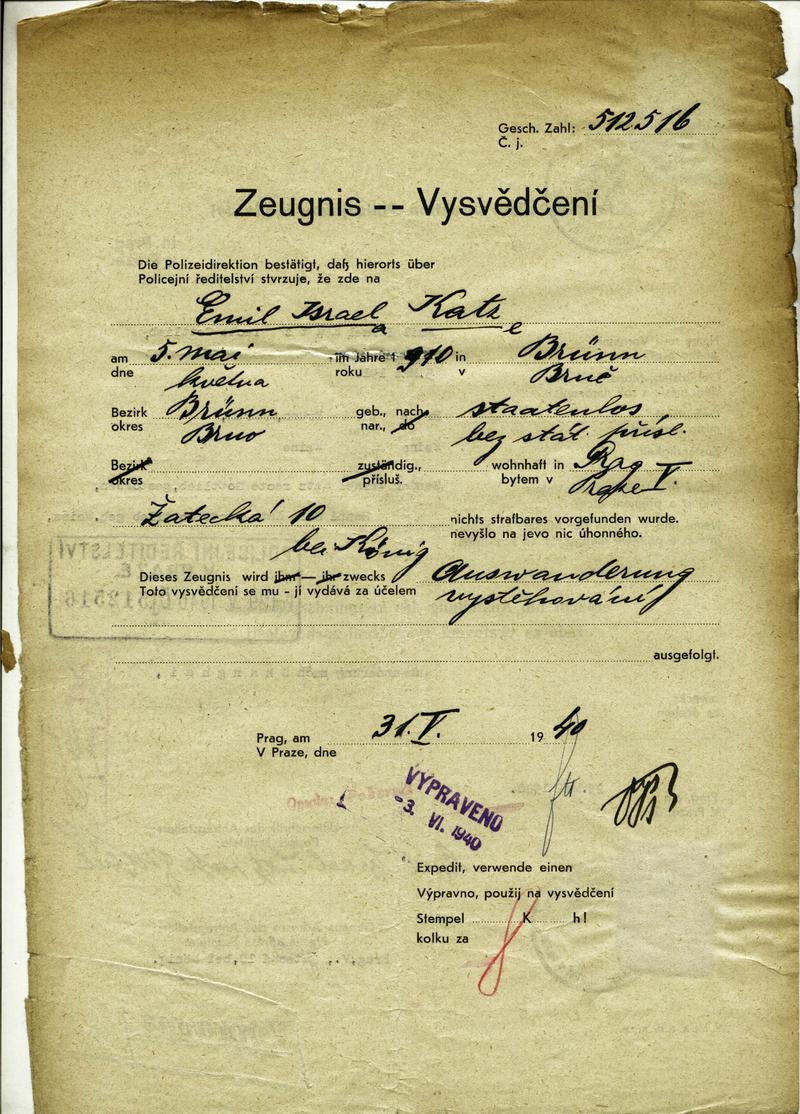 Gesch. Zahl: 512.516
Č. j.
Zeugnis -- Vysvědčení
Die Polizeidirektion bestätigt, daß hierorts über
Policejní ředitelství stvrzuje, že zde na
Emil Israel Katz
a e
am 5. mai im Jahre 1910 in Brünn
dne května roku v Brně
Bezirk Brünn geb., nach staatenlos
okres Brno nar., do bez stát. přísl.
Bezirk zuständig., wohnhaft in Prag
okres přísluš. bytem v Praze V.
Žatecká 10 nichts strafbares vorgefunden wurde.
bei König nevyšlo na jevo nic úhonného.
Dieses Zeugnis wird ihm — ihr zwecks Auswanderung
Toto vysvědčení se mu - jí vydává za účelem vystěhování
ausgefolgt.
Prag, am 31. V. 1940
V Praze, dne
VYPRAVENO
-3. VI. 1940
Expedit, verwende einen
Výpravno, použij na vysvědčení
Stempel K h!
kolku za